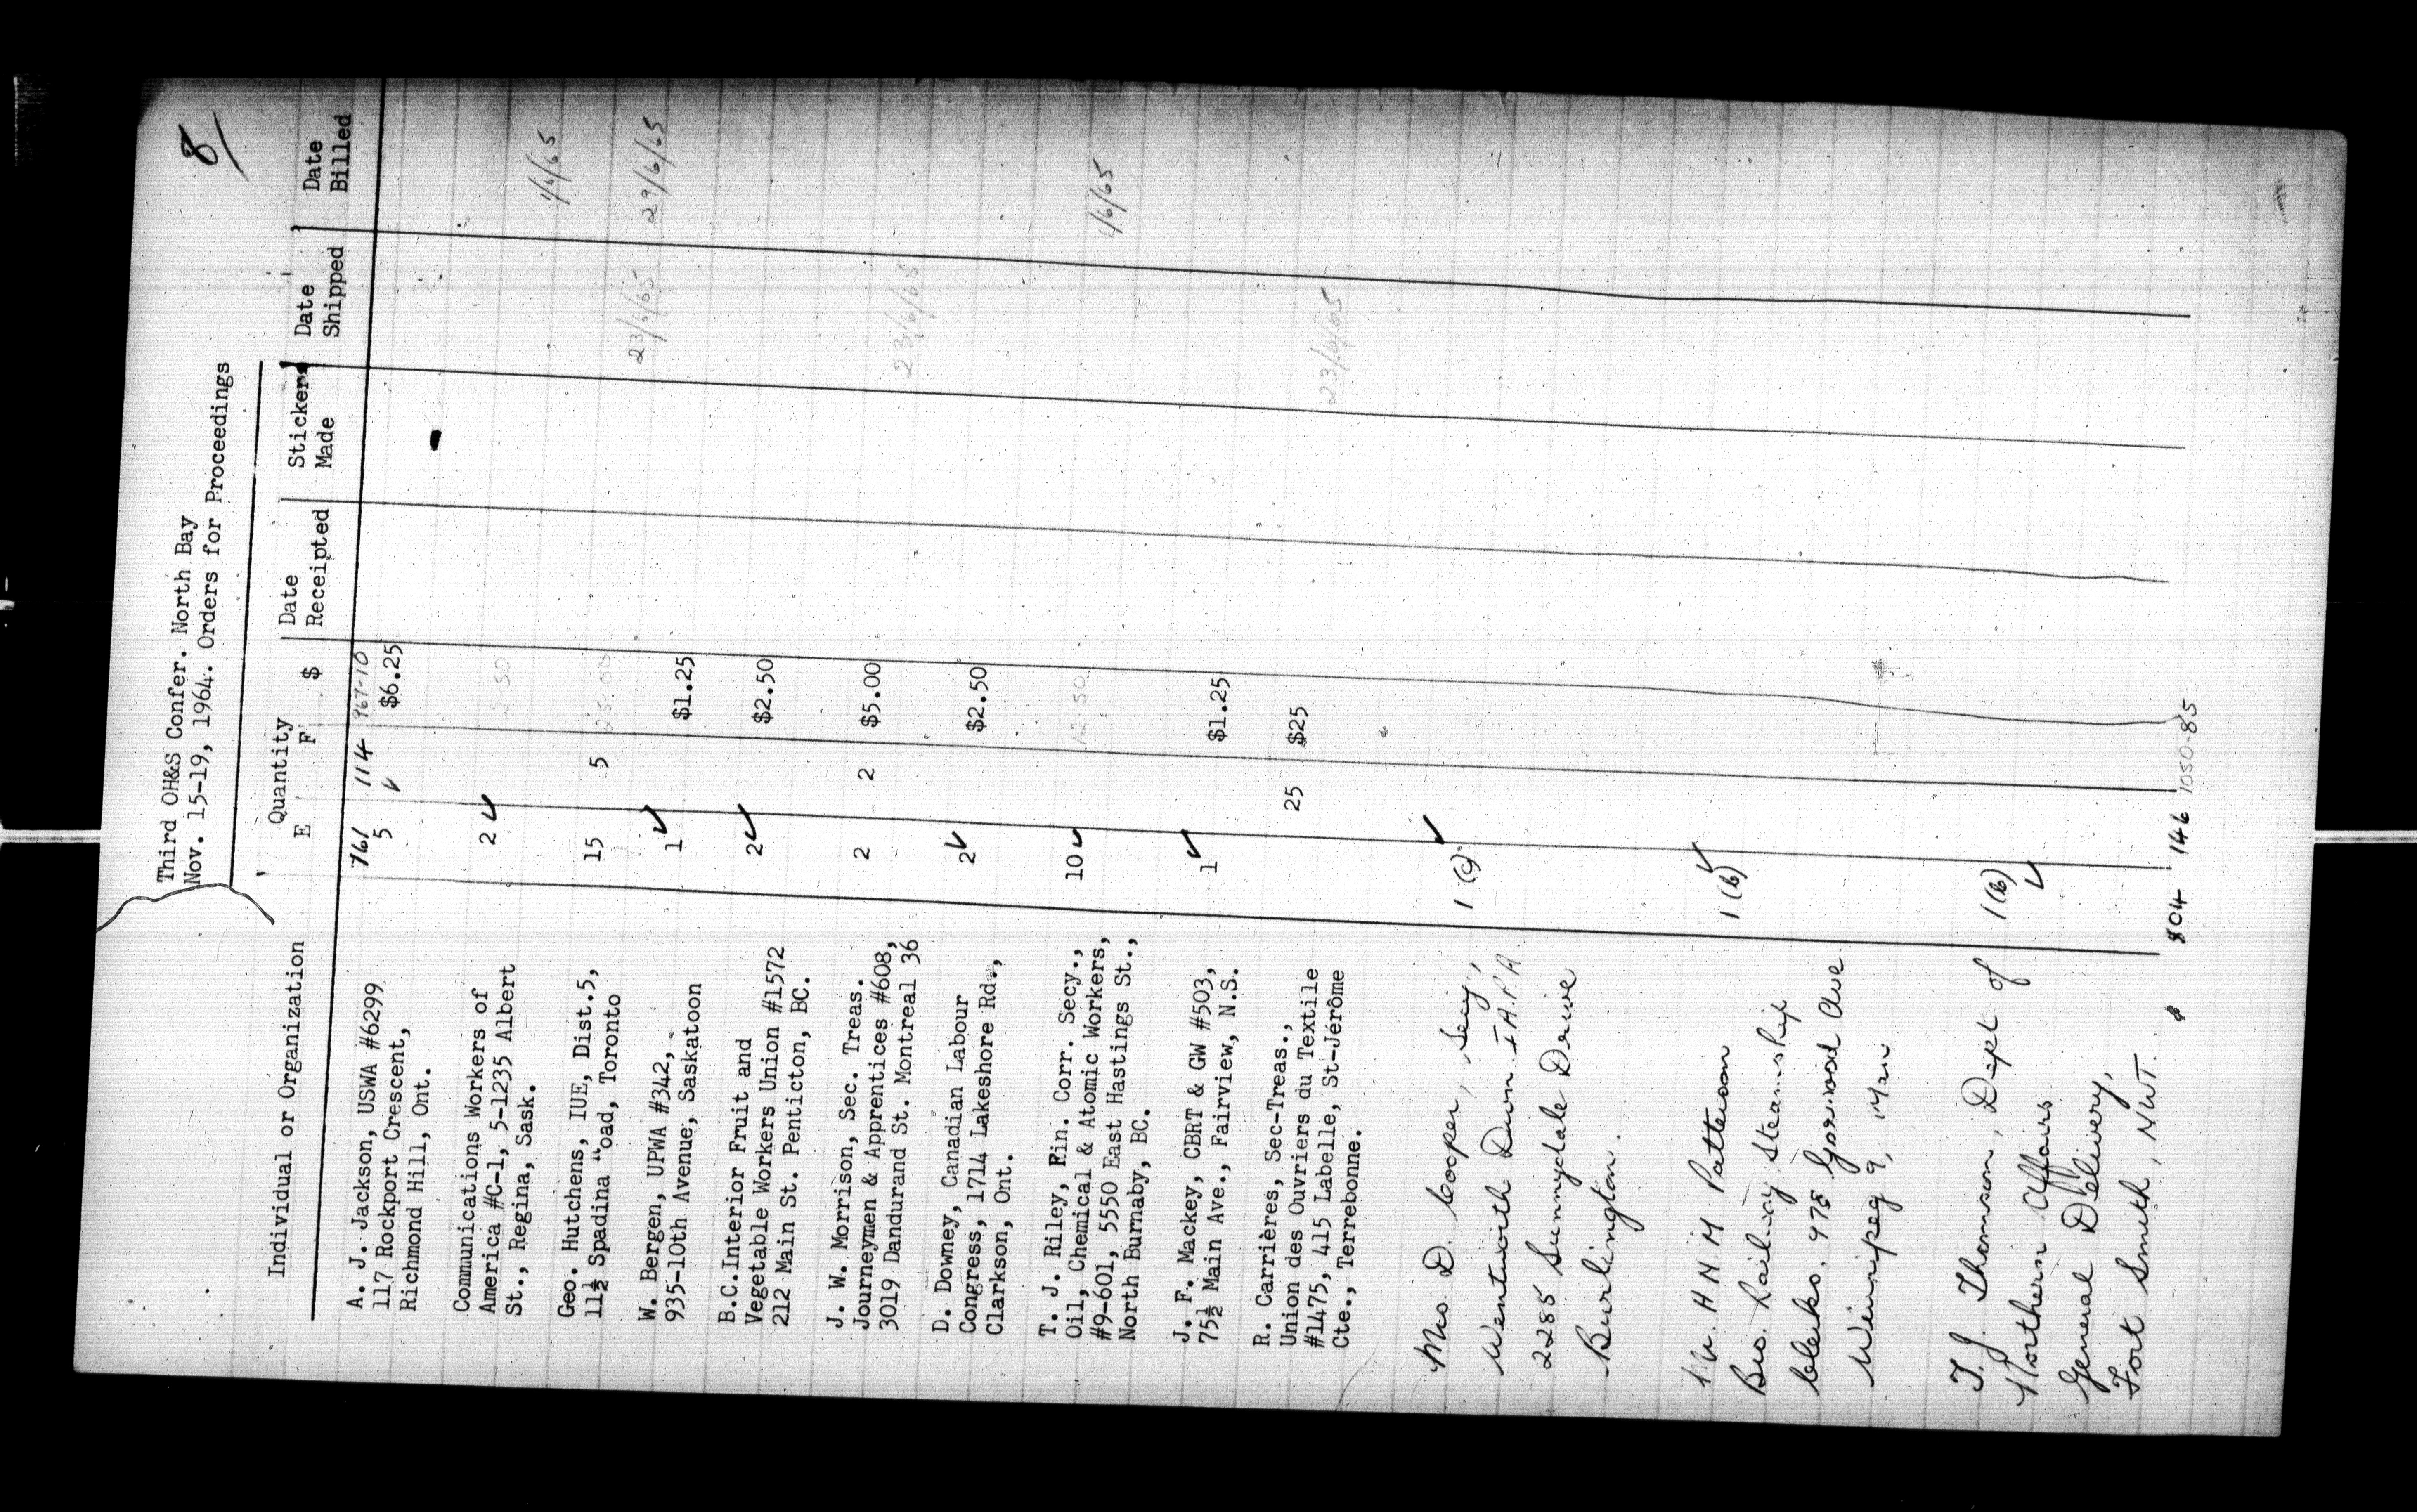 8/
Third OH&S Confer. North Bay
Nov. 15-19, 1964. Orders for Proceedings
Individual or Organization Quantity E F $ Date Receipted Stickers Made Date Shipped Date Billed
761 114 967-10
A. J. Jackson, USWA #6299 5 $6.25
117 Rockport Crescent,
Richmond Hill, Ont.
Communications Workers of
America #C-1, 5-1235 Albert 2 2.50
St., Regina, Sask.
1/6/65
Geo. Hutchens, IUE, Dist.5,
11½ Spadina "oad, Toronto 15 5 25.00
W. Bergen, UPWA #342, 23/6/65 29/6/65
935-10th Avenue, Saskatoon 1 $1.25
B.C.Interior Fruit and
Vegetable Workers Union #1572 2 $2.50
212 Main St. Penticton, BC.
J. W. Morrison, Sec. Treas.
Journeymen & Apprentices #608, 2 2 $5.00
3019 Dandurand St. Montreal 36 23/6/65
D. Downey, Canadian Labour
Congress, 1714 Lakeshore Rd., 2 $2.50
Clarkson, Ont.
T. J. Riley, Fin. Corr. Secy.,
Oil, Chemical & Atomic Workers, 10 12.50
#9-601, 5550 East Hastings St., 1/6/65
North Burnaby, BC.
J. F. Mackey, CBRT & GW #503,
75½ Main Ave., Fairview, N.S. 1 $1.25
R. Carrières, Sec-Treas.,
Union des Ouvriers du Textile 25 $25
#1475, 415 Labelle, St-Jérôme 23/6/65
Cte., Terrebonne.
Mrs D. Cooper, Secy, 1 (c)
Wentworth Dwn. I.A.P.A
2285 Sunnydale Drive
Burlington.
Mr. H N M Patterson 1 (b)
Bro. Railway Steamship
Clerks. 975 Garwood Ave
Winnipeg 9, Man
T. J. Thomson, Dept of 1 (b)
Northern Affairs
General Delivery,
Fort Smith, N.W.T.
804 146 1050-85